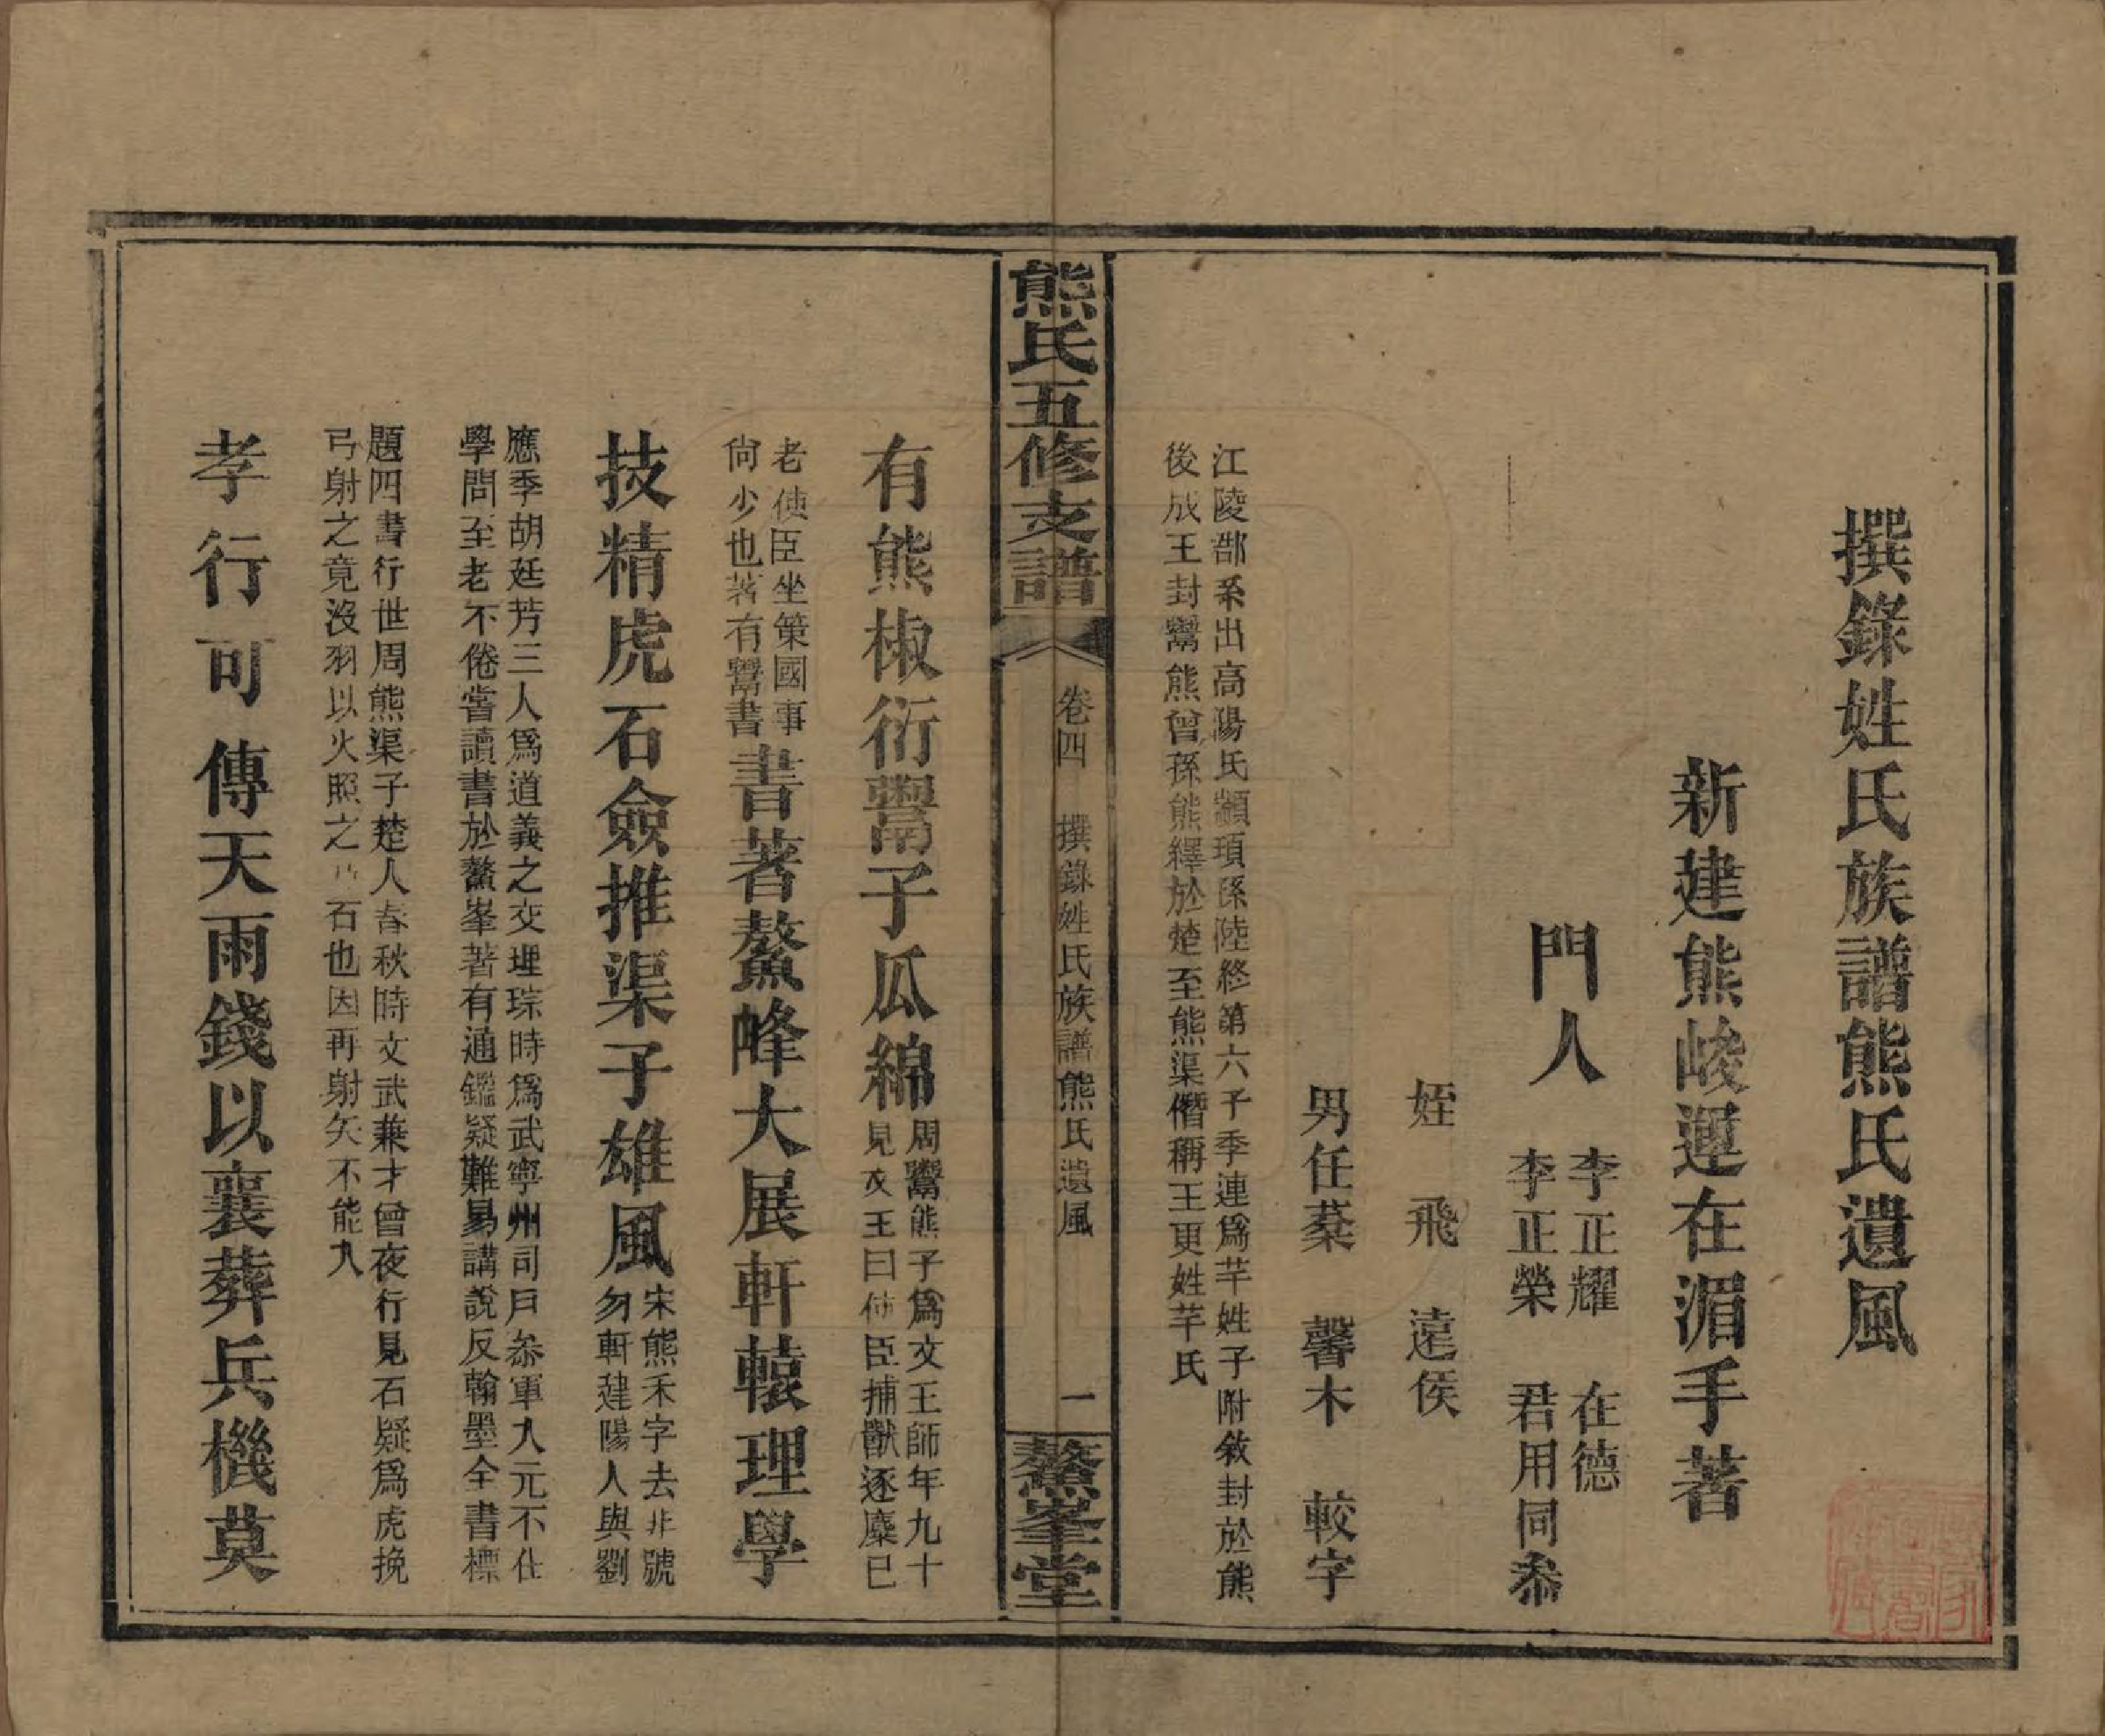 撰錄姓氏族譜熊氏遺風
新建熊峻運在湄手著
門人 李正耀 在德
李正榮 君用同叅
姪 飛 遠侯
男任蓁 馨木 較字
江陵郡系出高陽氏顓頊孫陸終第六子季連爲芊姓子附敘封於熊
後成王封鬻熊曾孫熊繹於楚至熊渠僭稱王更姓芊氏
熊氏五修支譜
卷四 撰錄姓氏族譜熊氏遺風 一
鰲峯堂
有熊椒衍鬻子瓜綿
周鬻熊子爲文王師年九十
見文王曰使臣捕獸逐麋已
老使臣坐策國事
尙少也著有鬻書
書著鰲峰大展軒轅理學
技精虎石僉推渠子雄風
宋熊禾字去非號
勿軒建陽人與劉
應季胡廷芳三人爲道義之交理琮時爲武寧州司戸叅軍入元不仕
學問至老不倦嘗讀書於鰲峯著有通鑑疑難易講說反翰墨全書標
題四書行世周熊渠子楚人春秋時文武兼才曾夜行見石疑爲虎挽
弓射之竟沒羽以火照之乃石也因再射矢不能入
孝行可傳天雨錢以襄葬兵機莫